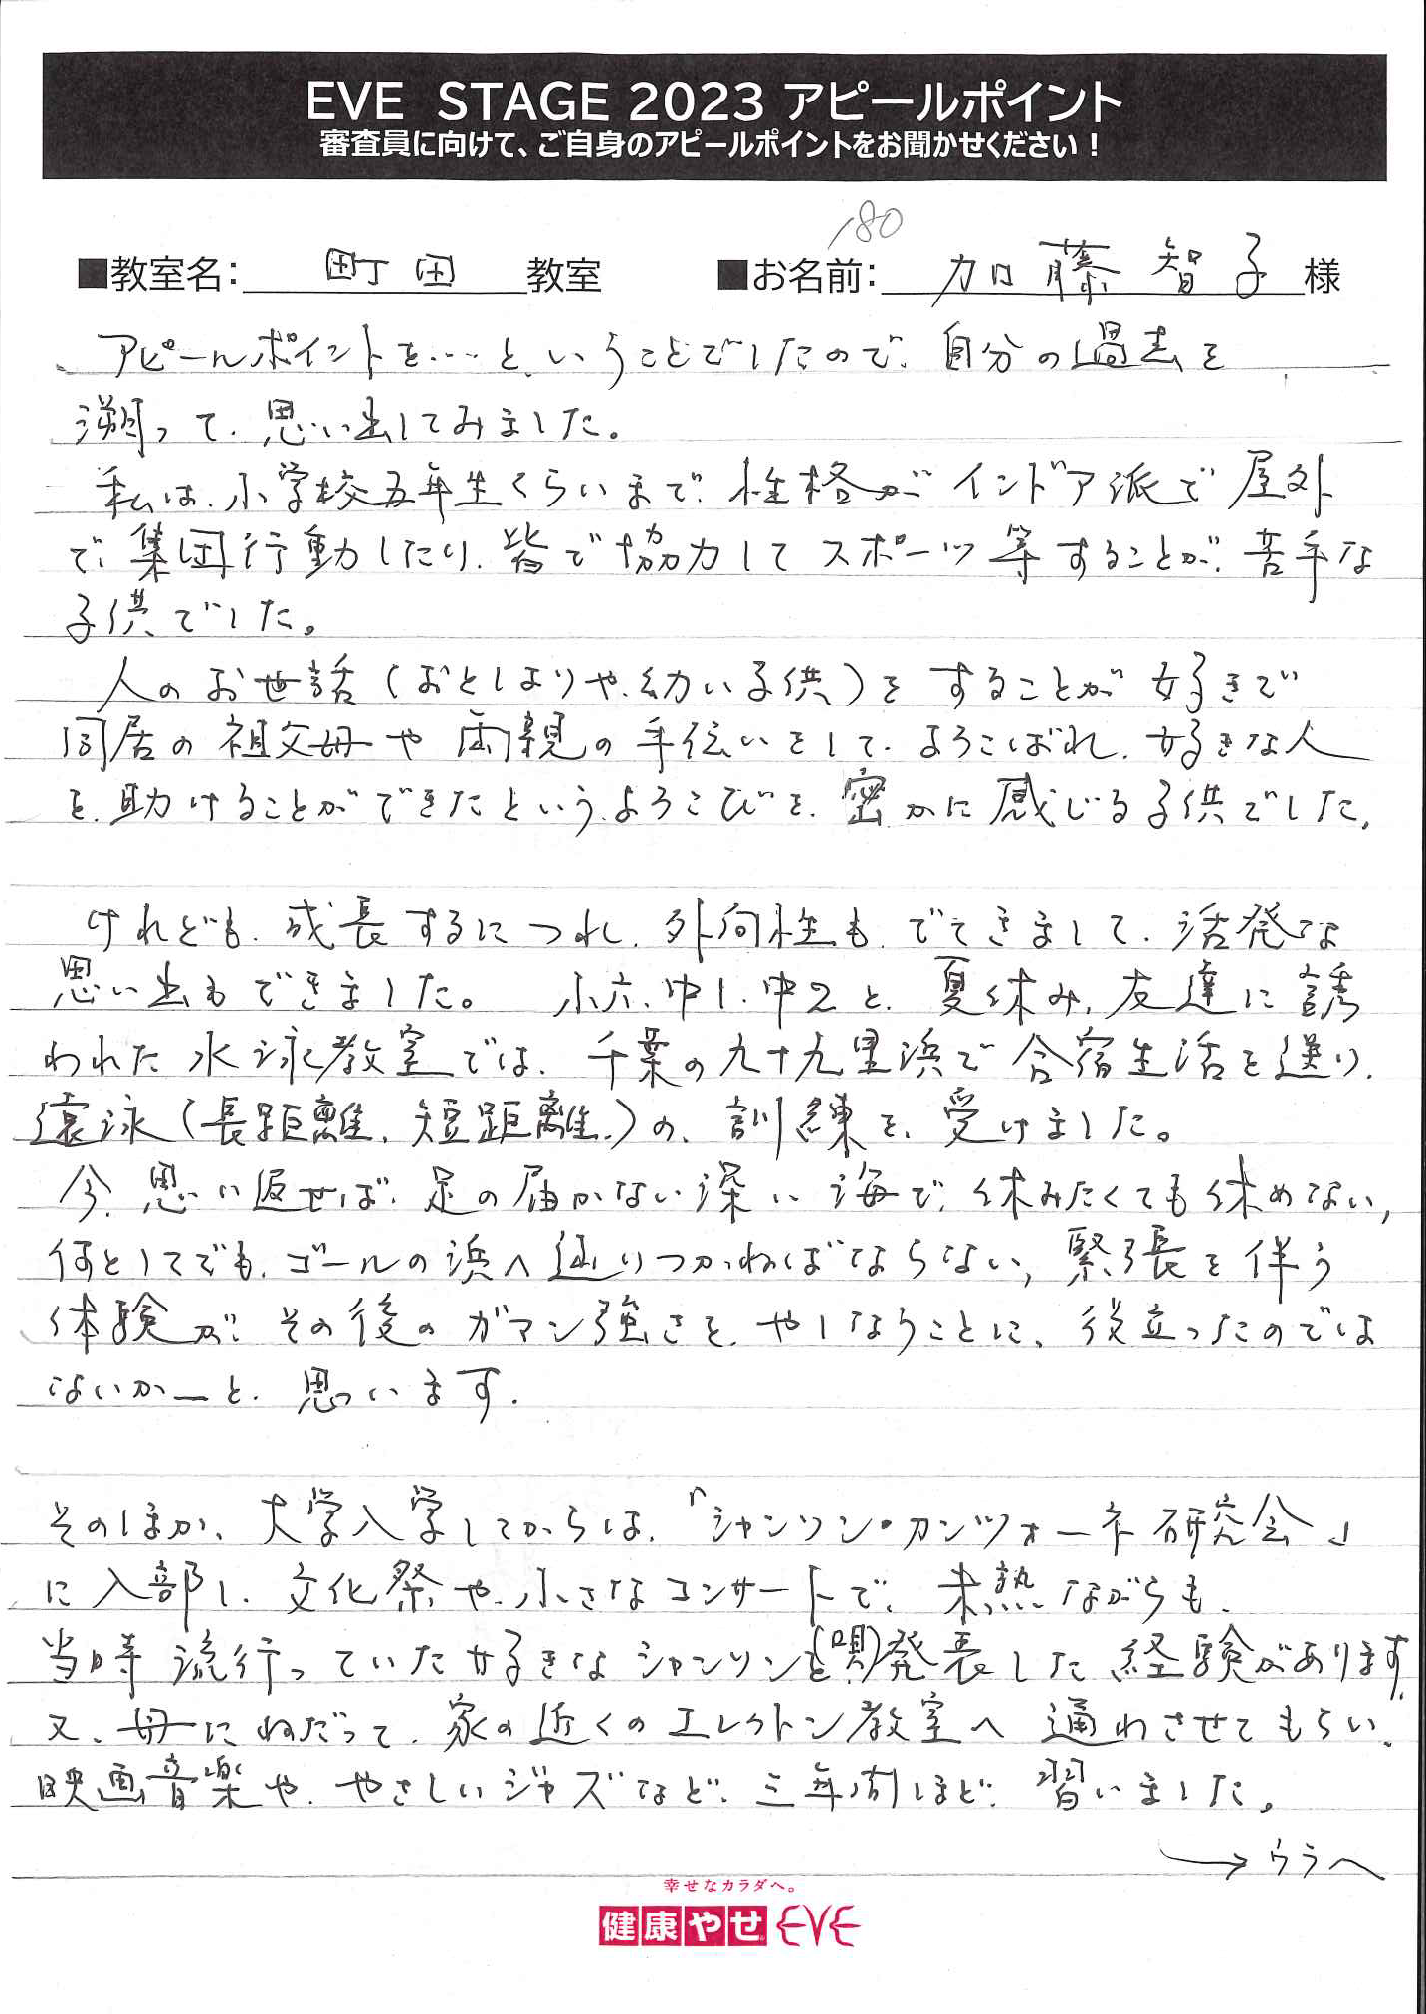 EVE STAGE 2023 アピールポイント
審査員に向けて、ご自身のアピールポイントをお聞かせください！
180
■教室名: 町田 教室 ■お名前: 加藤智子 様
アピールポイントを…と、いうことでしたので、自分の過去を
遡って、思い出してみました。
私は、小学校五年生くらいまで、性格がインドア派で屋外
で、集団行動したり、皆で協力してスポーツ等することが、苦手な
子供でした。
人のお世話(おとしよりや、幼い子供)をすることが好きで
同居の祖父母や両親の手伝いをして、よろこばれ、好きな人
を、助けることができたという、よろこびを、密かに感じる子供でした。
けれども、成長するにつれ、外向性も、でてきまして、活発な
思い出もできました。 小六、中1、中2と、夏休み、友達に誘
われた水泳教室では、千葉の九十九里浜で合宿生活を送り、
遠泳(長距離、短距離)の、訓練を、受けました。
今、思い返せば、足の届かない深い海で、休みたくても休めない、
何としてでも、ゴールの浜へ辿りつかねばならない、緊張を伴う
体験が、その後のガマン強さを、やしなうことに、役立ったのでは
ないか―と、思っています。
そのほか、大学入学してからは、「シャンソン・カンツォーネ研究会」
に入部し、文化祭や、小さなコンサートで、未熟ながらも、
当時流行っていた好きなシャンソンを(唄)発表した経験があります。
又、母にねだって、家の近くのエレクトン教室へ通わさせてもらい、
映画音楽や、やさしいジャズなど、三年間ほど、習いました。
→ウラへ
幸せなカラダへ。
健康やせ EVE